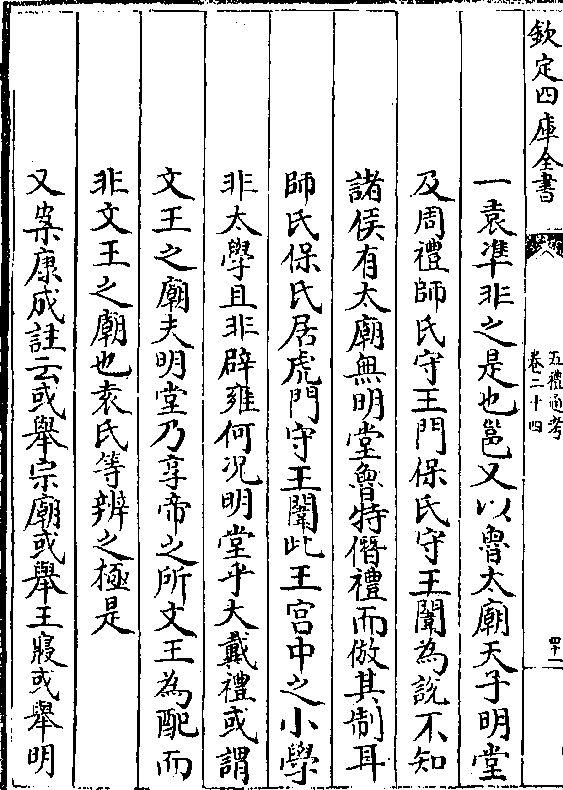 欽定四庫全書
五禮通考
卷二十四
四十一
一袁準非之是也邕又以魯太廟天子明堂
及周禮師氏守王門保氏守王闈為說不知
諸侯有太廟無明堂魯特僭禮而倣其制耳
師氏保氏居虎門守王闈此王宫中之小學
非太學且非辟雍何況明堂乎大戴禮或謂
文王之廟夫明堂乃享帝之所文王為配而
非文王之廟也袁氏等辨之極是
又案康成註云或舉宗廟或舉王寢或舉明